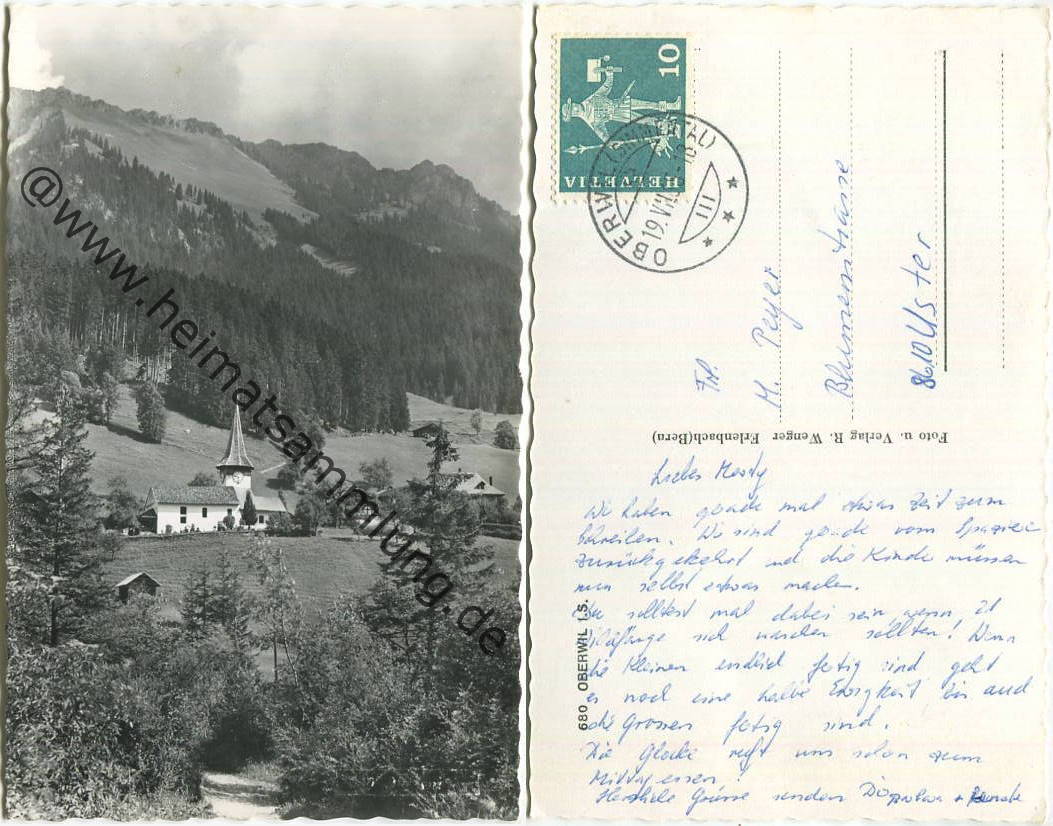 @www.heimatsammlung.de
HELVETIA
10
OBERWIL (SIMMENTAL)
19.VII.
III
Frl.
M. Peyer
Blumenstrasse
8610 Uster
Foto u. Verlag R. Wenger Erlenbach(Bern)
680 OBERWIL I.S.
Liebes
Wir haben gerade mal etwas Zeit zum
schreiben. Wir sind gerade vom Spazier
zurückgekehrt und die Kinder müssen
nun selbst etwas machen.
Du solltest mal dabei sein, wenn 21
Wildfänge sich waschen sollten! Wenn
die Kleinen endlich fertig sind geht
es noch eine halbe Ewigkeit bis auch
die Grossen fertig sind.
Die Glocke ruft uns schon zum
Mittagessen!
Herzliche Grüsse senden Dir